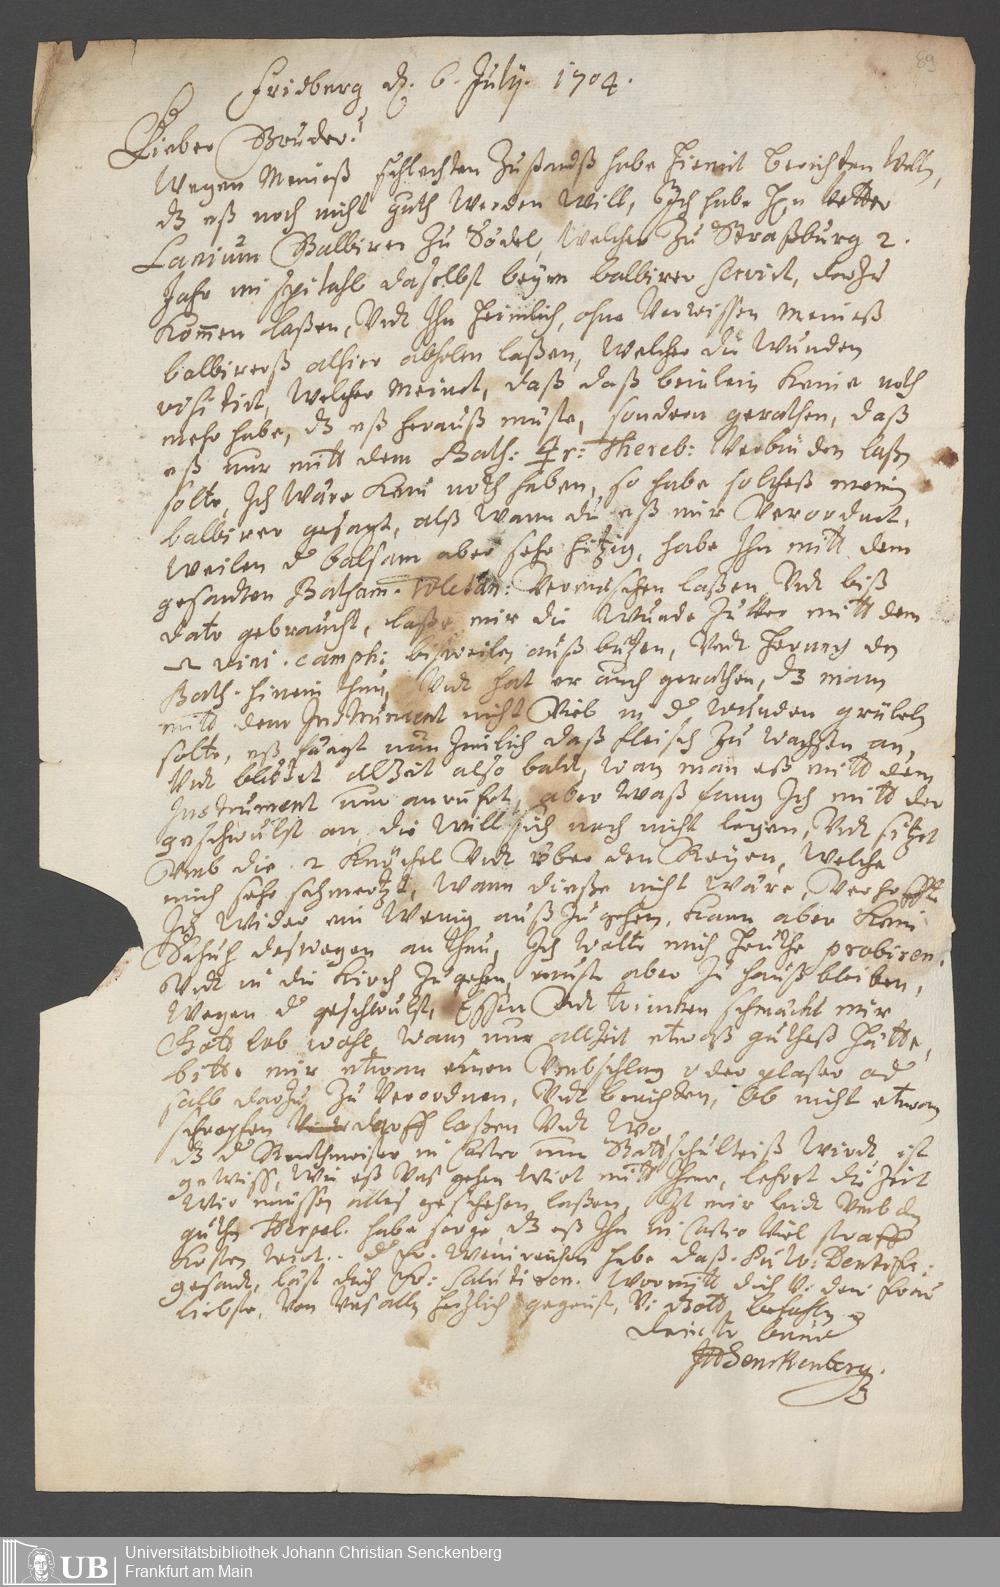 89
Fridberg d. 6. July. 1704.
Lieber Bruder!
Wegen Meineß schlechten Zustandß habe hiemit berichten wolln,
dz eß noch nicht guth werden will, Ich habe Hn Vetter
Balbirer zu Södel, welcher zu Straßburg 2.
Jahr im spitahl daselbst beym balbirer servirt, darzu
kommen laßen, Undt Ihn heimlich, ohne Vorwissen meineß
balbirerß alhier abholen laßen, welcher die Wunden
visitirt, welcher meinet, daß daß beinlein keine noth
mehr habe, dz eß herauß müste, sondern gerathen, daß
eß nur mitt dem Balß: Thereb: Verbinden laßn
solte, Ich wäre kein noth haben, so habe solcheß meinem
balbirer gesagt, alß wann du eß mir Verordnet,
Weilen d balsam aber sehr hitzig, habe Ihn mitt dem
gesandten Balsam. Toletan: Vermischen laßen Undt biß
dato gebraucht, laße mir die Wunde mitt dem
vini camph: bisweilen außbutzen, Undt hernach den
Balß. hinein thun, Undt hat er auch gerathen, dz man
mitt dem Instrument nicht Viel in d Wunden grübeln
solte, eß fangt nun zimlich daß fleisch zu wachsen an,
Undt blutet allzeit also bald, wan man eß mitt dem
Instrument nur anrühret, aber waß fang Ich mitt der
geschwulst an, die will sich noch nicht legen, Undt sitzet
Umb die 2 Knöchel Undt über den Reyen, welche
mich sehr schmertzt, wann dieße nicht wäre, Verhoffte
Ich wider ein wenig außzugehen, kann aber kein
Schuh deswegen anthun, Ich wolte mich heuthe probiren
Undt in die Kirch zu gehen, muste aber zu hauß bleiben,
wegen d geschwulst, Essen Undt trincken schmäckt mir
Gott lob wohl, wann nur allzeit etwaß gutheß hätte,
bitte mir etwan einen Umbschlag oder plaster od
salb darzu zu Verordnen, Undt berichten, ob nicht etwan
schrepfen darff laßen Undt wo
dz d Rentmeister in Castro nun Stattschultheiß wirdt ist
gewiss, Wie eß Unß gehen wirt mitt Ihme, lehret die Zeit
Wir müssen alles geschehen laßen, Ist mir leidt Umb den
guthen habe sorge, dz eß Ihn in Castro Viel straff
kosten wirt. habe daß
gesandt, läst dich Womitt dich V: dein frau
liebste, Von Unß allen hertzlich gegrüst, V: Gott befohln
Dein tr bruder
JHSenckenberg.
UB
Universitätsbibliothek Johann Christian Senckenberg
Frankfurt am Main